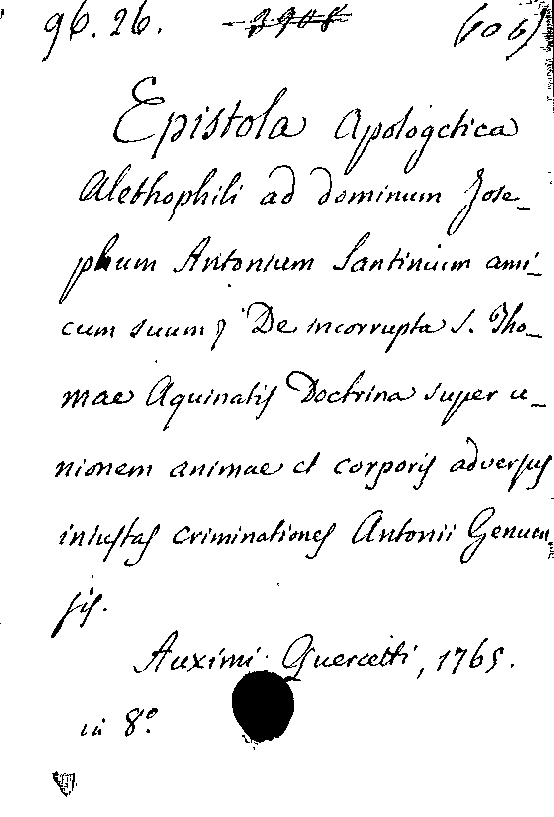 96. 26. 3908 (106)
Epistola Apologetica
Alethophili ad dominum Jose_
phum Antonium Santinium ami_
cum suum; De incorrupta S. Tho_
mae Aquinatis Doctrina super u_
nionem animae et corporis adversus
iniustas criminationes Antonii Genuen
sis.
Auximi Quercetti, 1765.
in 8º